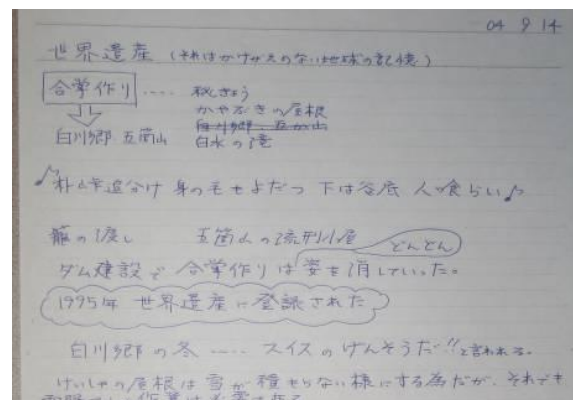 04 9 14
世界遺産 (それはかけがえのない地球の記憶)
合掌作り ‥‥ 秘きょう
かやぶきの屋根
白川郷・五か山
白川郷 五箇山 白水の滝
♪朴の木追分け 身の毛もよだつ 下は谷底 人喰らい♪
籠の渡し 五箇山の流刑小屋
どんどん
ダム建設で 合掌作りは姿を消していった。
1995年 世界遺産に登録された
白川郷の冬 ‥‥ スイスのげんそうだ!!と言われる。
けいしゃの屋根は雪が積もらない様にする為だが、それでも